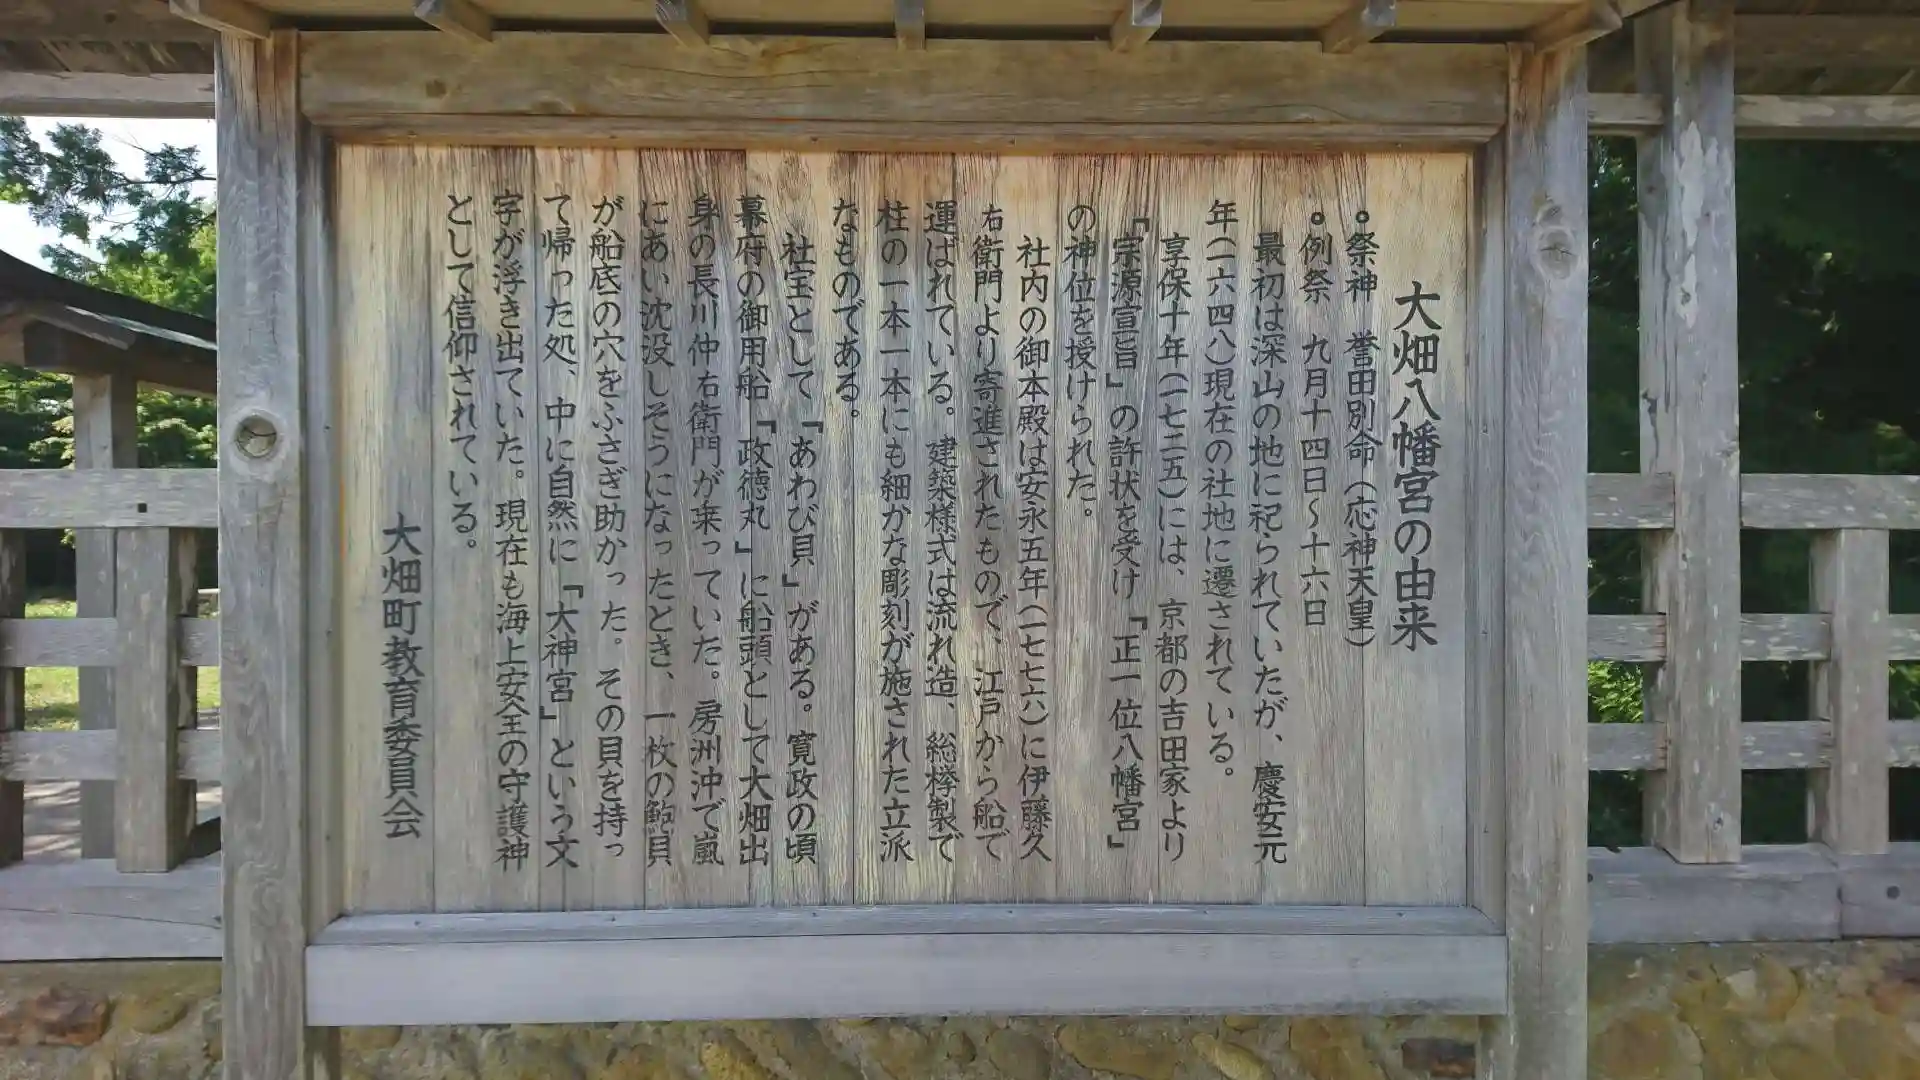 大畑八幡宮の由来
⚬祭神　誉田別命(応神天皇)
⚬例祭　九月十四日〜十六日
最初は深山の地に祀られていたが、慶安元
年(一六四八)現在の社地に遷されている。
享保十年(一七二五)には、京都の吉田家より
「宗源宣旨」の許状を受け「正一位八幡宮」
の神位を授けられた。
社内の御本殿は安永五年(一七七六)に伊藤久
右衛門より寄進されたもので、江戸から船で
運ばれている。建築様式は流れ造、総欅製で
柱の一本一本にも細かな彫刻が施された立派
なものである。
社宝として「あわび貝」がある。寛政の頃
幕府の御用船「政徳丸」に船頭として大畑出
身の長川仲右衛門が乗っていた。房洲沖で嵐
にあい沈没しそうになったとき、一枚の鮑貝
が船底の穴をふさぎ助かった。その貝を持っ
て帰った処、中に自然に「大神宮」という文
字が浮き出ていた。現在も海上安全の守護神
として信仰されている。
大畑町教育委員会